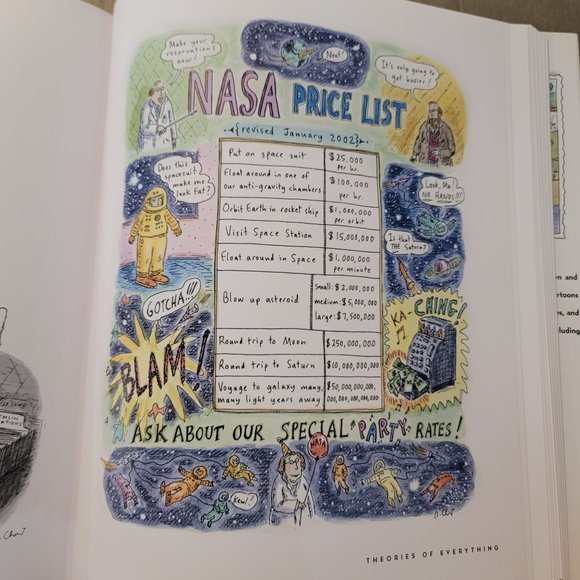 Make your
reservations
now!
Neat!
It's only going to
get busier!
NASA PRICE LIST
{revised January 2002}
Does this
spacesuit
make me
look fat?
Look, Ma!
NO HANDS!!!
Is that
THE Saturn?
Put on space suit $25,000 per hr.
Float around in one of
our anti-gravity chambers $100,000 per hr.
Orbit Earth in rocket ship $1,000,000 per orbit
Visit Space Station $15,000,000
Float around in Space $1,000,000 per minute
Blow up asteroid small: $2,000,000
medium: $5,000,000
large: $7,500,000
Round trip to Moon $250,000,000
Round trip to Saturn $10,000,000,000
Voyage to galaxy many,
many light years away $50,000,000,000,
000,000,000,000,000
GOTCHA!!!
BLAM!
KA-
CHING!
ASK ABOUT OUR SPECIAL PARTY RATES!
NASA
Kew!
R. Chast
THEORIES OF EVERYTHING
n and
rtoons
s, and
cluding